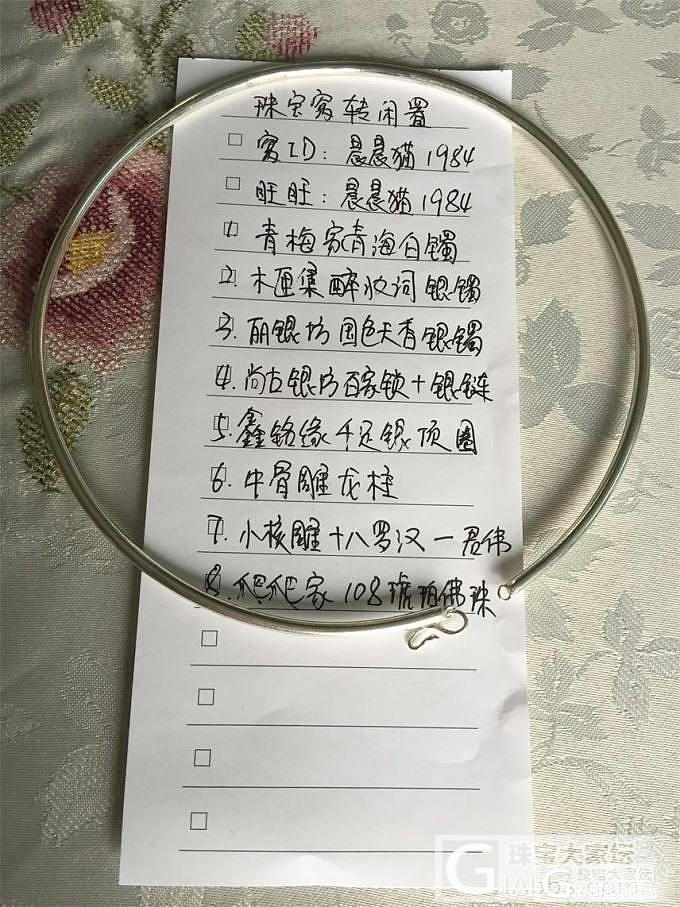 珠宝窝转闲置
窝ID：晨晨猫1984
旺旺：晨晨猫1984
1 青梅家青海白镯
2. 木匣集醉妆词银镯
3. 丽银坊国色天香银镯
4. 尚古银坊百家锁+银链
5. 鑫铭缘千足银项圈
6. 牛骨雕龙柱
7. 小核雕十八罗汉一君伟
8. 爬爬家108琥珀佛珠
珠宝大家坛
珠宝大家坛